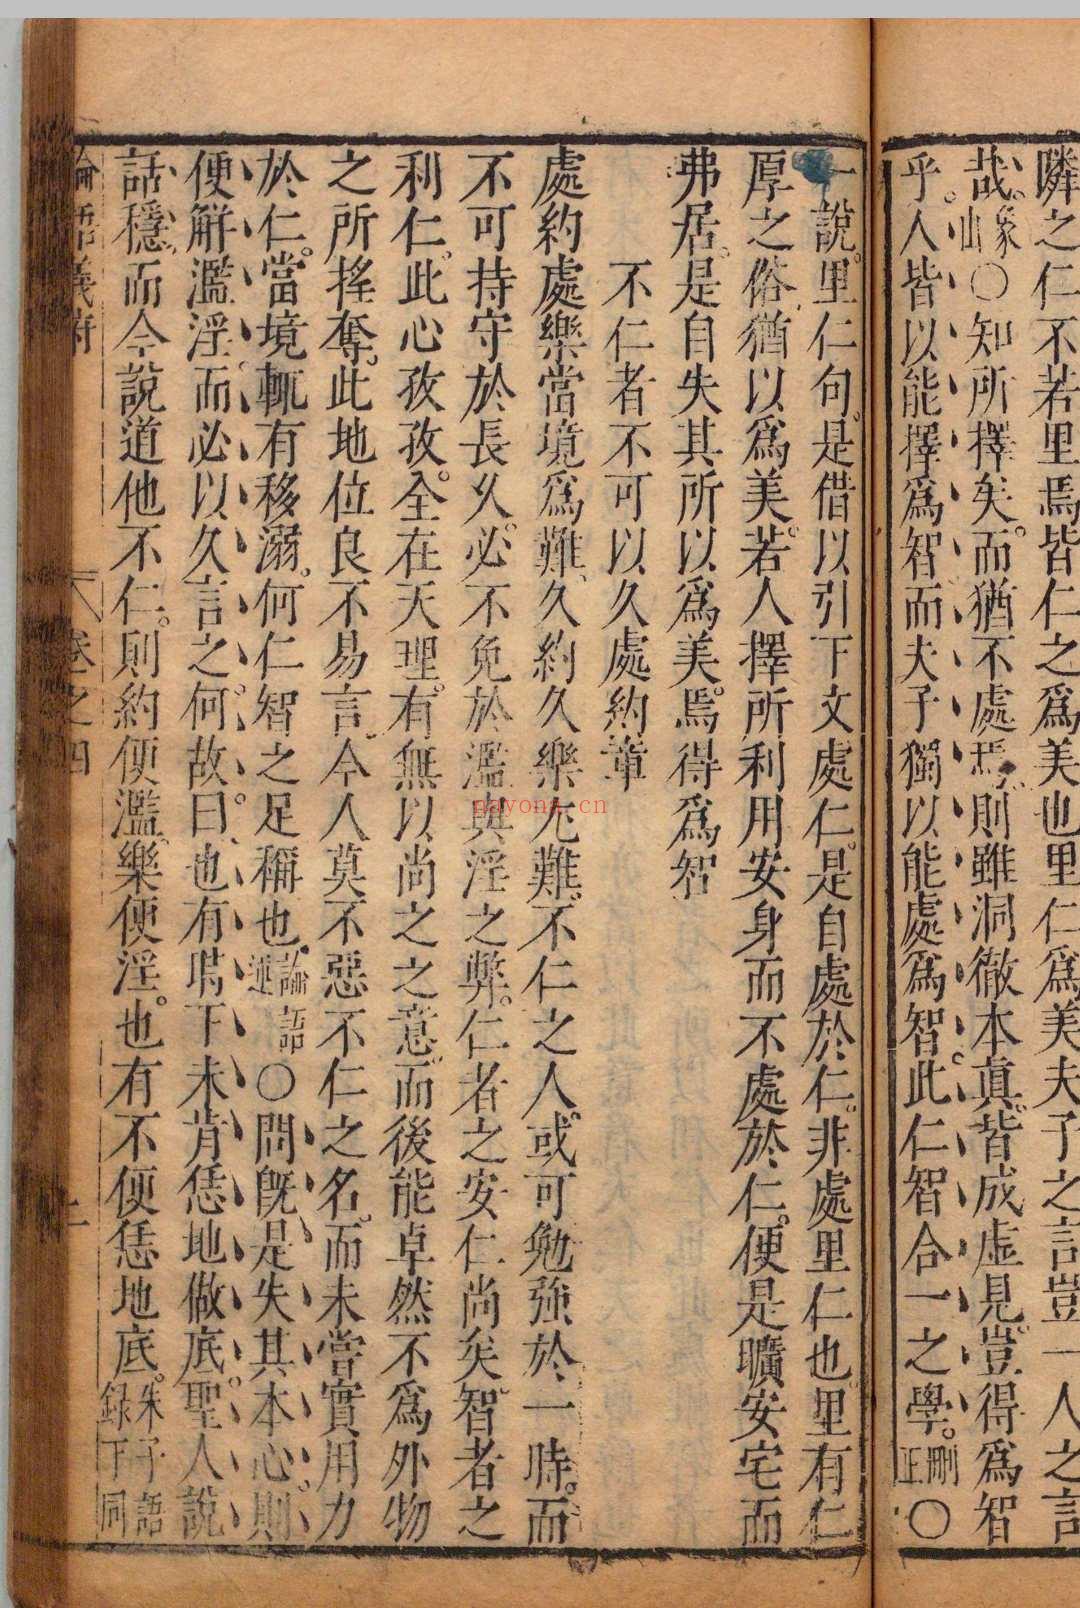 隣之仁不若里焉皆仁之爲美也里仁爲美夫子之言豈一人之言
哉象山○知所擇矣而猶不處焉則雖洞徹本真皆成虛見豈得爲智
乎人皆以能擇爲智而夫子獨以能處爲智此仁智合一之學刪正○
一說里仁句是借以引下文處仁是自處於仁非處里仁也里有仁
厚之俗猶以爲美若人擇所利用安身而不處於仁便是曠安宅而
弗居是自失其所以爲美焉得爲智
不仁者不可以久處約章
處約處樂當境爲難久約久樂尤難不仁之人或可勉強於一時而
不可持守於長久必不免於濫與淫之弊仁者之安仁尚矣智者之
利仁此心孜孜全在天理有無以尚之之意而後能卓然不爲外物
之所搖奪此地位良不易言今人莫不惡不仁之名而未嘗實用力
於仁當境輒有移溺何仁智之足稱也論語述○問旣是失其本心則
便解濫淫而必以久言之何故曰也有時下未肯恁地做底聖人說
話穩而今說道他不仁則約便濫樂便淫也有不便恁地底朱子語錄下同
論語義府
卷之四
nayona.cn